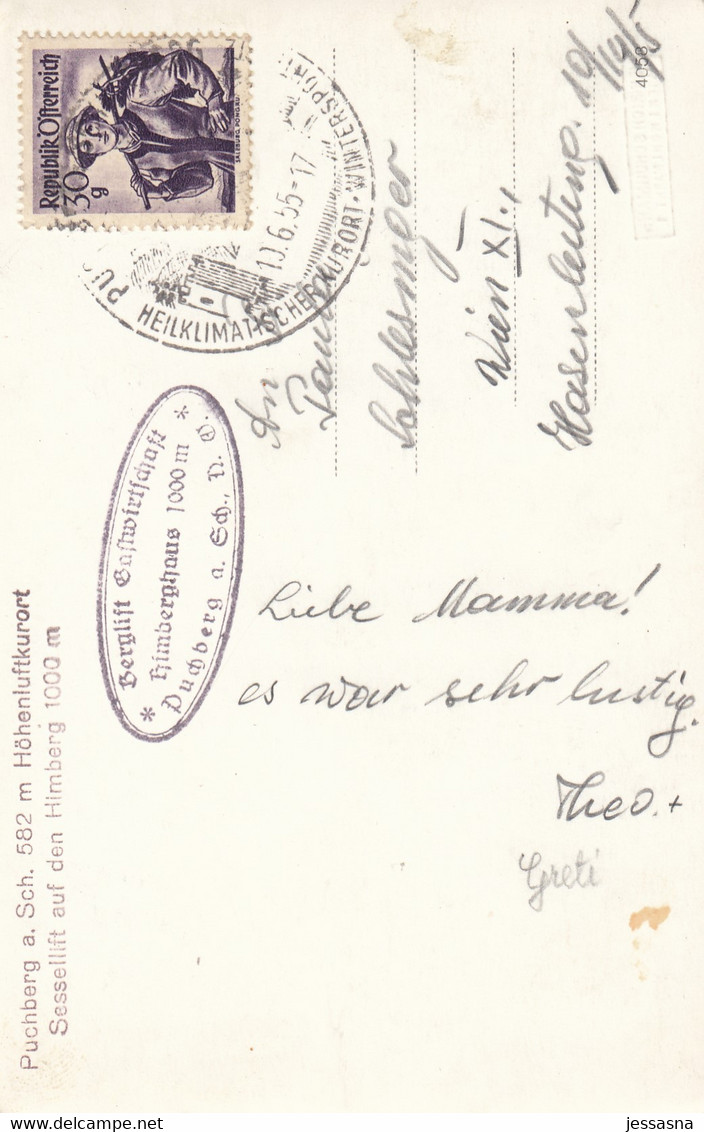 Puchberg a. Sch. 582 m Höhenluftkurort
Sessellift auf den Himberg 1000 m
Republik Österreich
30
g
SALZBURG, PONGAU
PUC
HEILKLIMATISCHER KURORT · WINTERSPORT
10.6.55-17
* Berglift Gastwirtschaft *
Himberghaus 1000 m
Puchberg a. Sch., N. Ö.
An
Schlesinger
Wien XI.,
Hasenleiteng. 10/
4058
Liebe Mamma!
es war sehr lustig.
Theo. +
Greti
jessasna